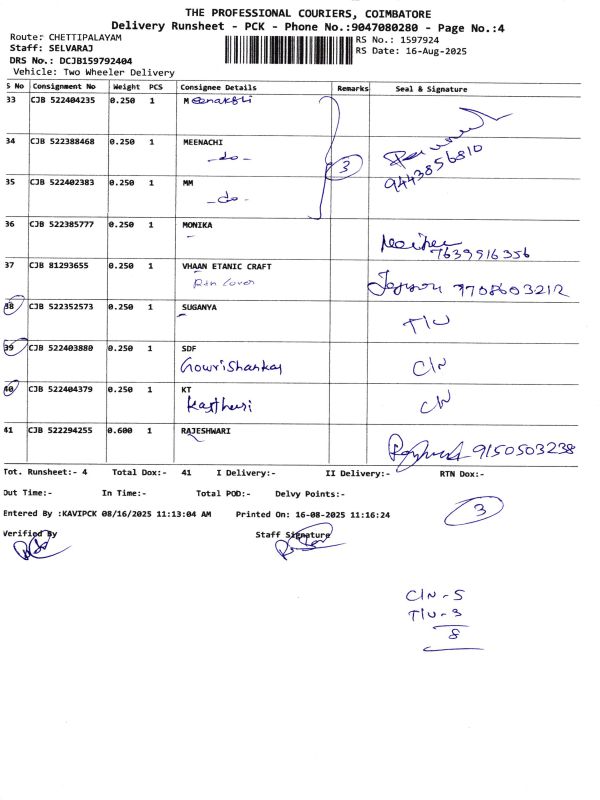 THE PROFESSIONAL COURIERS, COIMBATORE
Delivery Runsheet - PCK - Phone No.:9047080280 - Page No.:4
Route: CHETTIPALAYAM
RS No.: 1597924
Staff: SELVARAJ
RS Date: 16-Aug-2025
DRS No.: DCJB159792404
Vehicle: Two Wheeler Delivery
S No Consignment No Weight PCS Consignee Details Remarks Seal & Signature
33 CJB 522404235 0.250 1 Meenakshi
34 CJB 522388468 0.250 1 MEENACHI
-do- 3
9443856810
35 CJB 522402383 0.250 1 MM
-do-
36 CJB 522385777 0.250 1 MONIKA
7639916356
37 CJB 81293655 0.250 1 VHAAN ETANIC CRAFT
9708603212
38 CJB 522352573 0.250 1 SUGANYA
T/U
39 CJB 522403880 0.250 1 SDF
Gowrishankar C/N
40 CJB 522404379 0.250 1 KT
Kasthuri C/N
41 CJB 522294255 0.600 1 RAJESHWARI
9150503238
Tot. Runsheet:- 4 Total Dox:- 41 I Delivery:- II Delivery:- RTN Dox:-
Out Time:- In Time:- Total POD:- Delvy Points:-
3
Entered By :KAVIPCK 08/16/2025 11:13:04 AM Printed On: 16-08-2025 11:16:24
Verified By Staff Signature
C/N - 5
T/U - 3
8